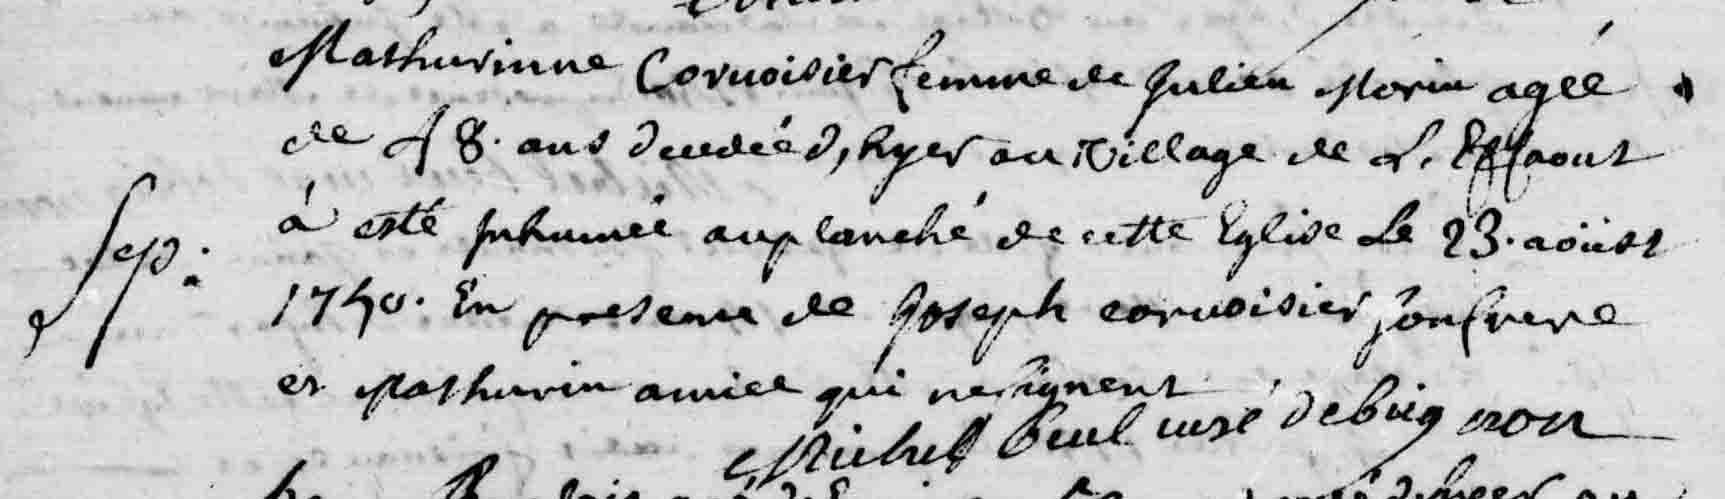 Mathurinne Corvoisier femme de Julien Morin agée
de 48. ans decedée d'hyer au village de L'Effaout
Sep. à esté inhumée au planché de cette Eglise Le 23. aoüst
1740. En presence de Joseph corvoisier son frere
et Mathurin amice qui ne signent
Michel curé de bignon